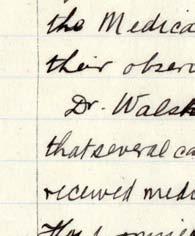 the Medica
their obser
Dr. Walsh
that several ca
received medi